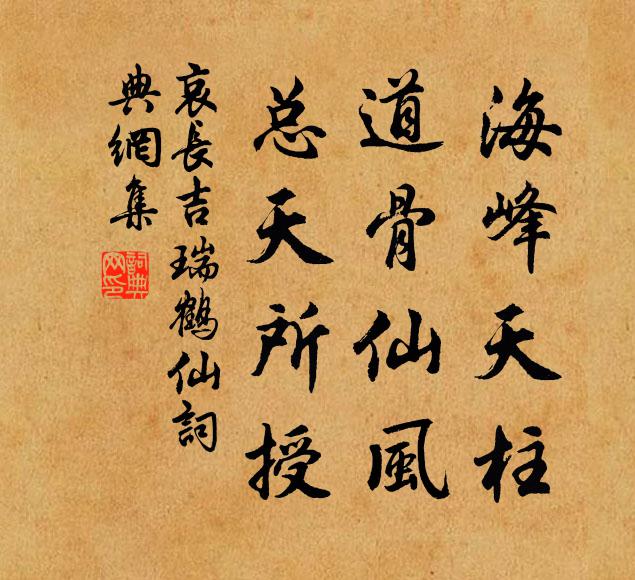 海峰天柱
道骨仙風
总天所授
哀長吉瑞鶴仙詞
典網集
詞典網印